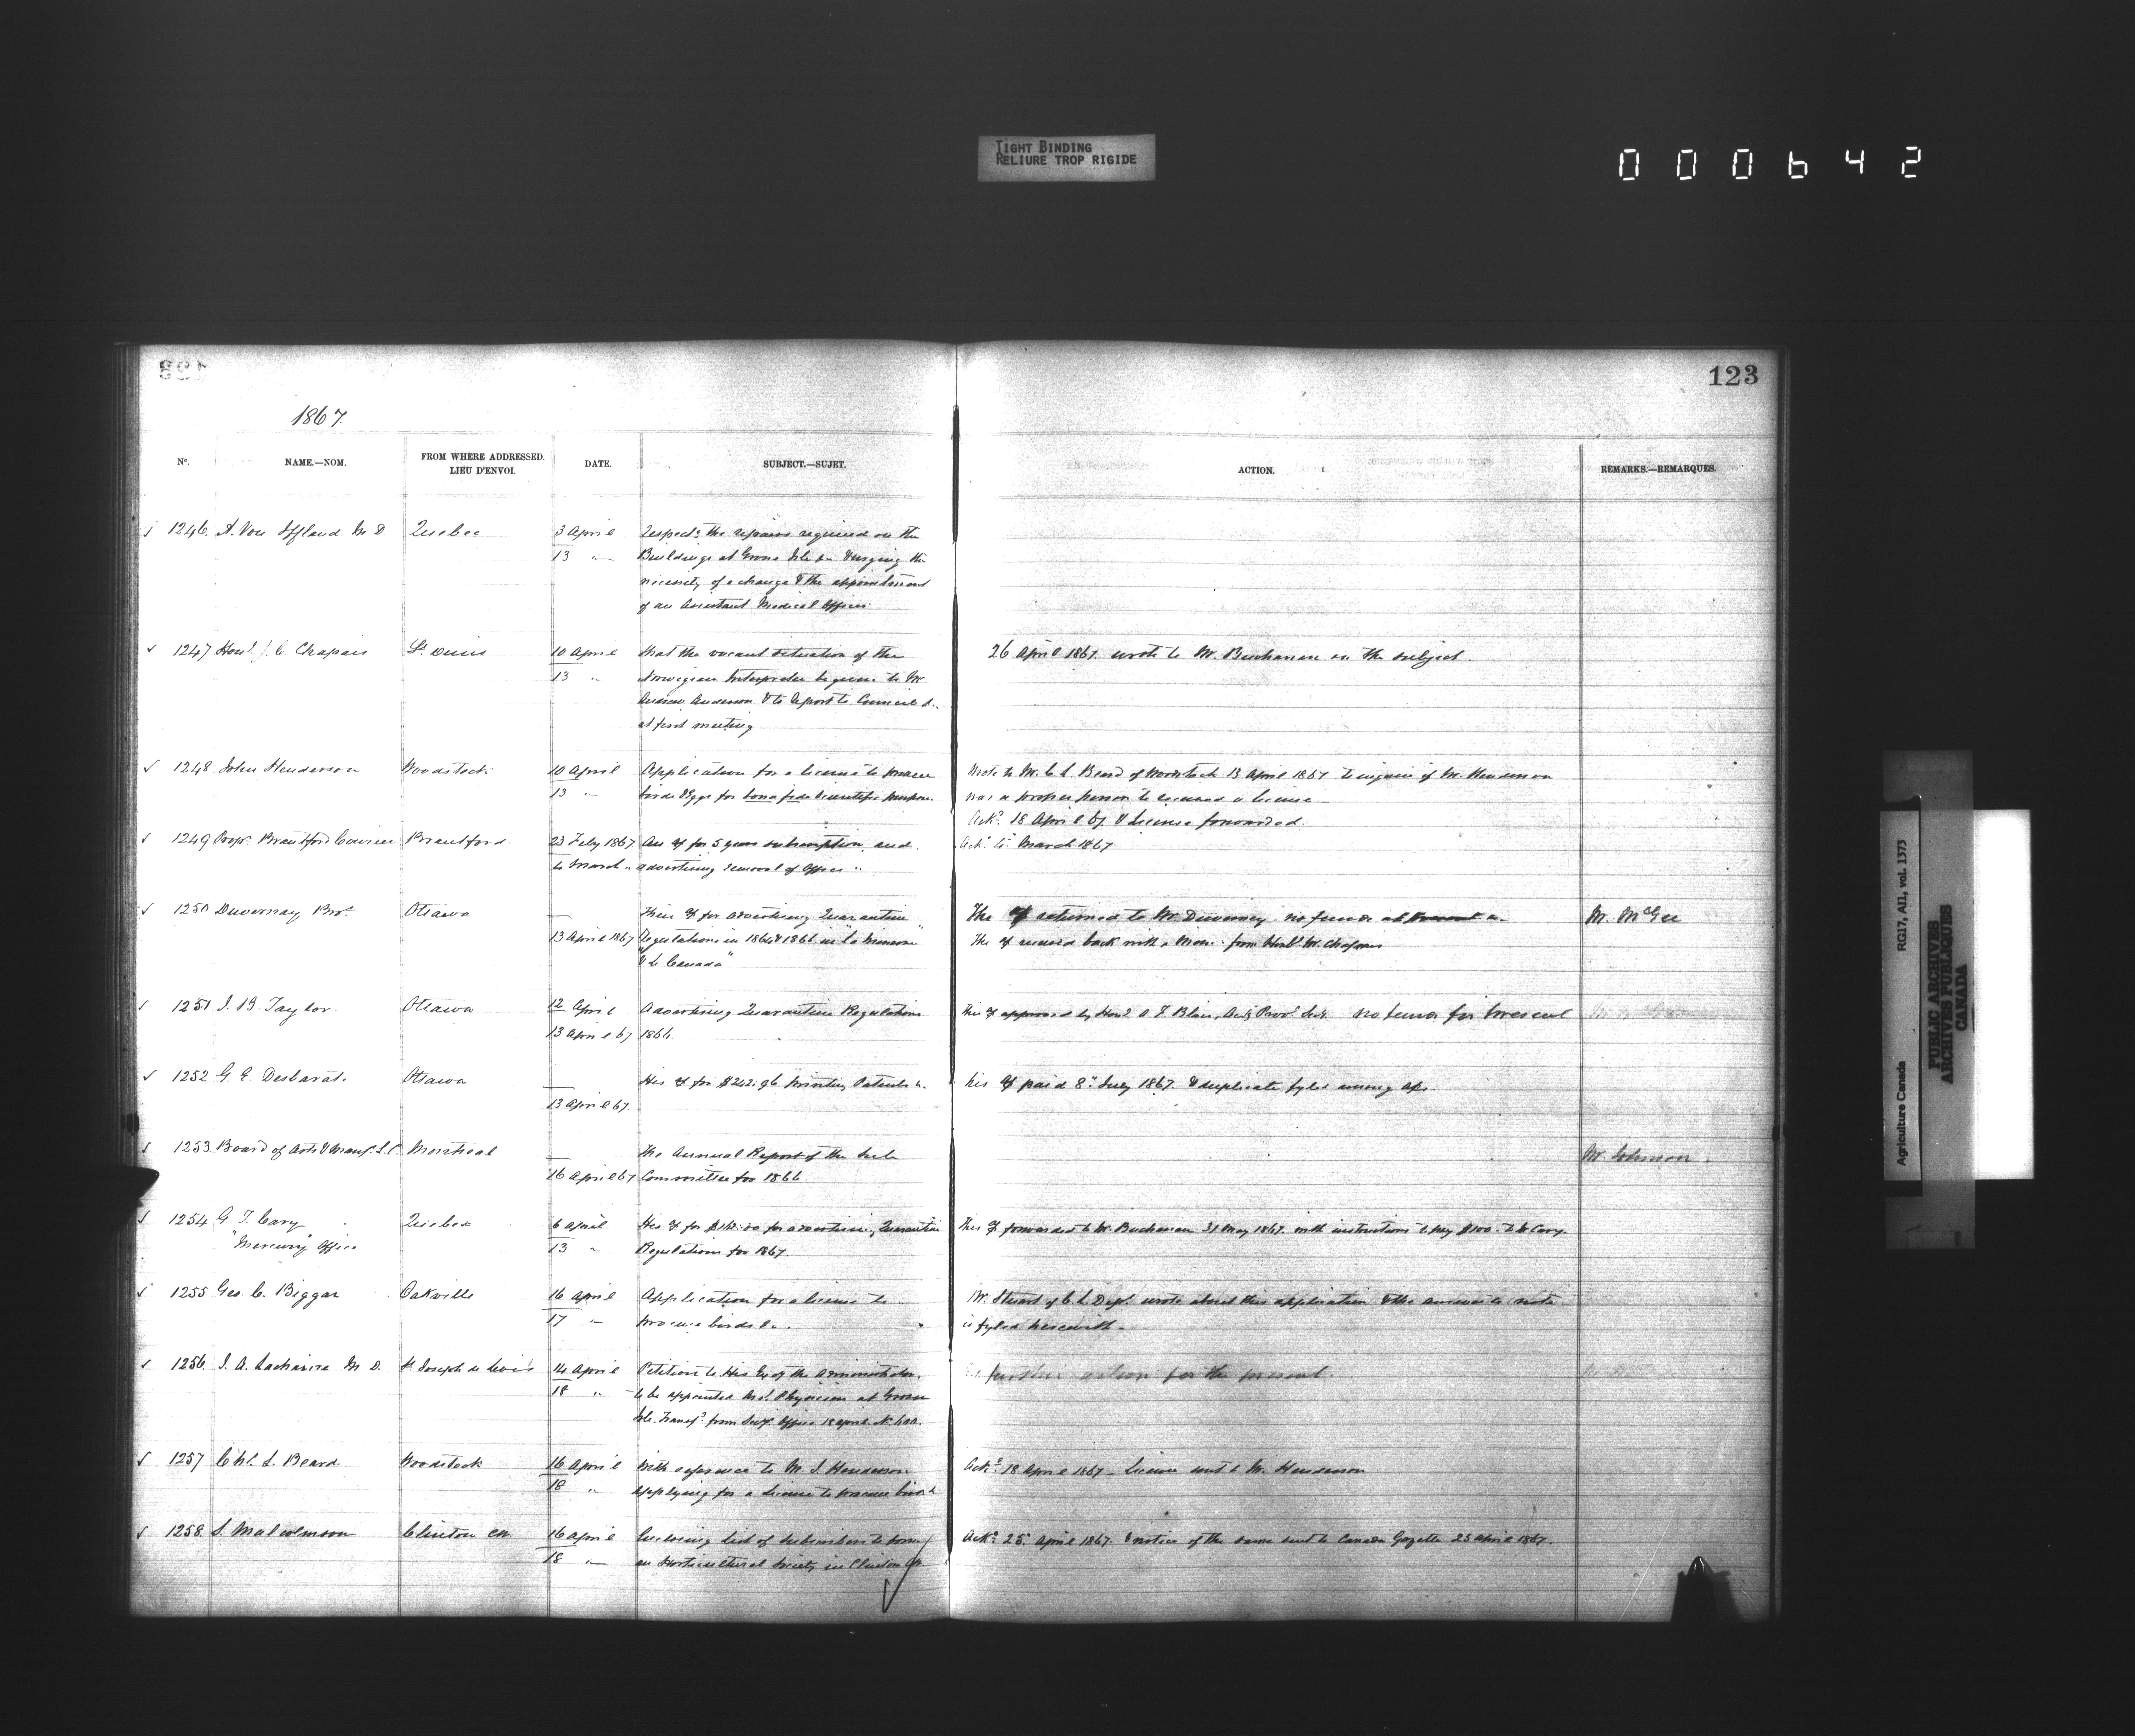 TIGHT BINDING
RELIURE TROP RIGIDE
000642
123
1867
No. NAME.—NOM. FROM WHERE ADDRESSED. LIEU D'ENVOI. DATE. SUBJECT.—SUJET. ACTION. REMARKS.—REMARQUES.
1246 A. Von Iffland M D Quebec 3 April Respectg the repairs required on the
13 " Buildings at Grosse Isle &c & urging the
necessity of a change & the appointment
of an Assistant Medical Officer
1247 Honl. J. C. Chapais St Denis 10 April that the vacant situation of the 26 April 1867 wrote to Mr. Buchanan on the subject.
13 " Norwegian Interpreter be given to Mr.
Anderson & to report to Council
at first meeting
1248 John Henderson Woodstock 10 April Application for a license to procure Wrote to Mr. C L Beard of Woodstock 13 April 1867 to inquire if Mr. Henderson
13 " birds & Eggs for bona fide scientific purposes. was a proper person to a license
Ackd 18 April 67 & License forwarded.
1249 Propr Brantford Courier Brantford 23 Feby 1867 An a/c for 5 years subscription and Ackd March 1867
March " advertising removal of Office "
1250 Duvernay Bros. Ottawa Their a/c for advertising Quarantine The a/c returned to Mr Duvernay no funds at present Mr. McGee
13 April 1867 Regulations in 1864 & 1866 in "La Minerve" The a/c received back with a Mem. from Honbl Mr. Chapais
& Le Canada"
1251 I. B. Taylor. Ottawa 12 April Advertising Quarantine Regulations This a/c approved by Honl A. J. Blair, Prov. Secy. no funds for present
13 April 67 1866.
1252 G. E. Desbarats Ottawa His a/c for $242.96 printing Patents &c. his a/c paid 8th July 1867 & duplicate fyled among a/cs.
13 April 67.
1253 Board of Arts & Manufs L. C. Montreal The Annual Report of the Sub Mr. Johnson
16 April 67 Committee for 1866
1254 G. T. Cary Quebec 6 April His a/c for advertising Quarantine This a/c forwarded to Mr. Buchanan 31 May 1867 with instructions to pay $100 to Mr Cary.
"Mercury" Office 13 " Regulations for 1867.
1255 Geo. C. Biggar Oakville 16 April Application for a license to Mr. Stuart of C. L. Dept. wrote about this application & the answer to note
17 " procure birds &c. is fyled herewith.
1256 J. A. Lachaine M D. St Joseph de Levis 14 April Petition to His Ex of the Administrator further action for the present.
18 " to be appointed Physician at Grosse
Isle. Transfd from Secy's Office 18 April
1257 Chs. L. Beard Woodstock 16 April With reference to Mr. J. Henderson Ackd 18 April 1867 – License sent to Mr. Henderson
18 " applying for a License to procure birds
1258 S. Malcolmson Clinton CW 16 April Enclosing list of subscribers to form Ackd 25 April 1867. & notice of the same sent to Canada Gazette 25 April 1867.
18 " an Horticultural Society in Clinton CW
Agriculture Canada RG17, AII, vol. 1373
PUBLIC ARCHIVES
ARCHIVES PUBLIQUES
CANADA